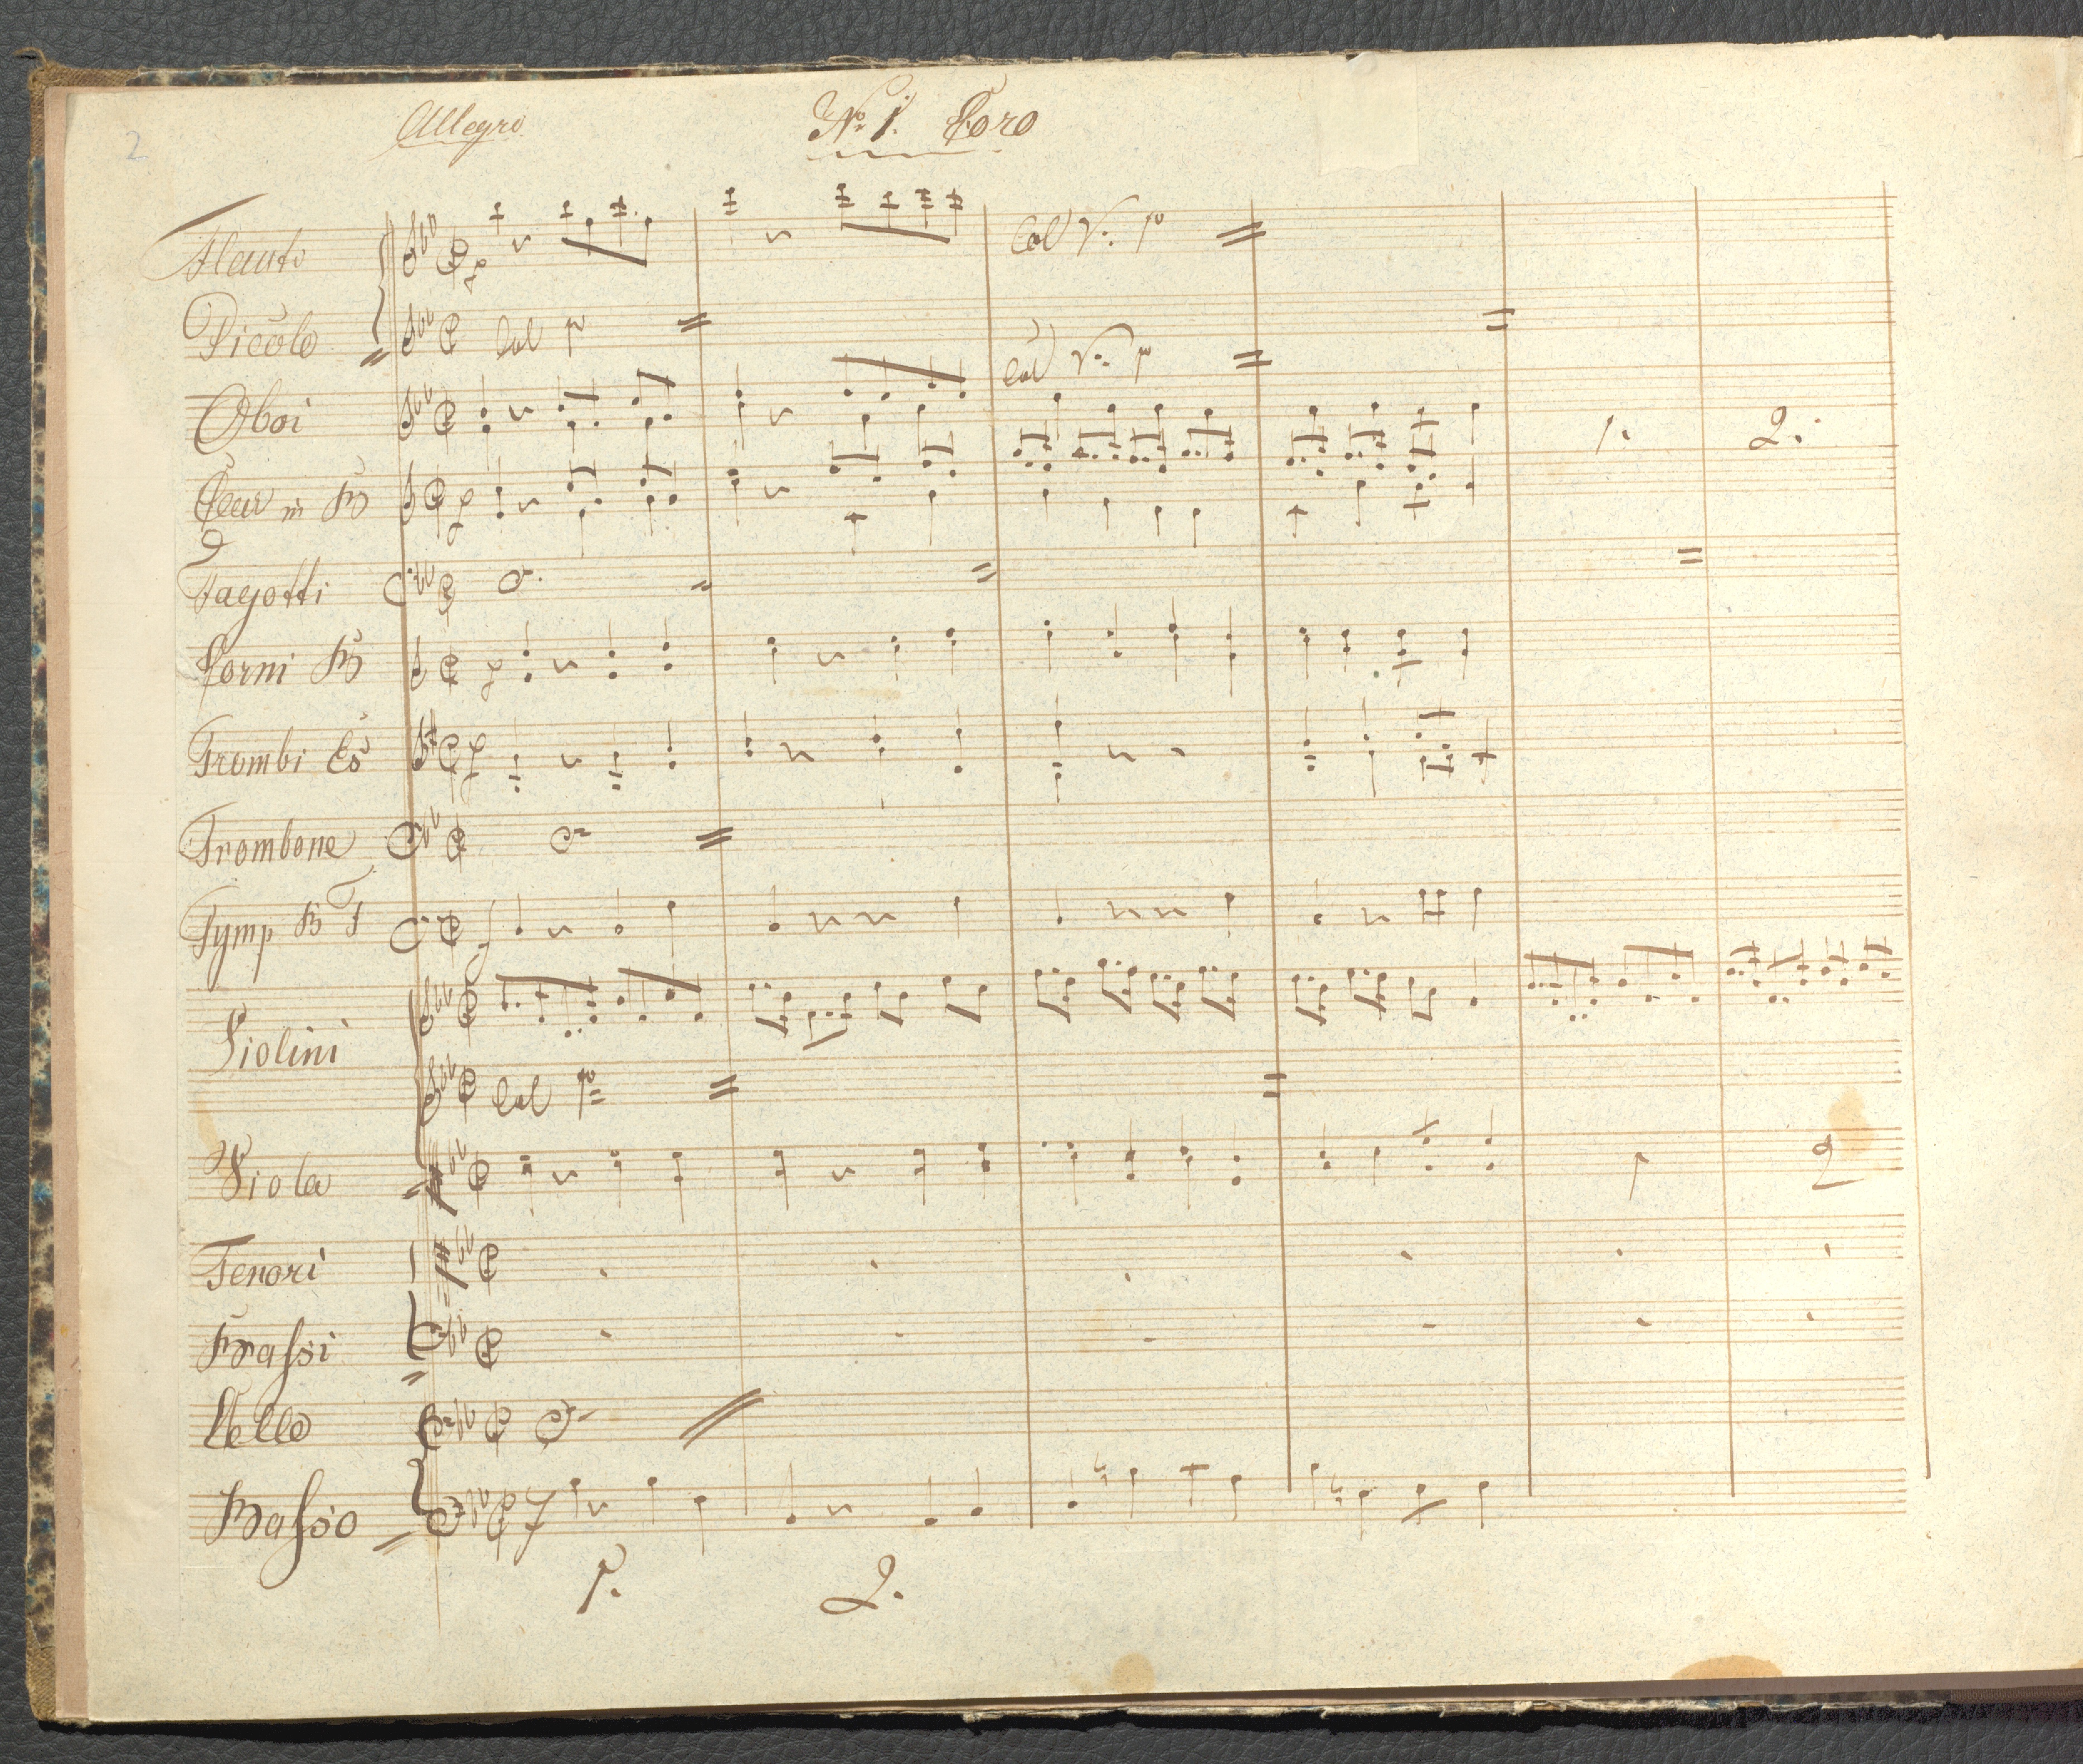 2
Allegro
No. 1. Coro
Flauto
Col V: 1o
Picolo
Col 1o
Col V: 1o
Oboi
1. 2.
Clar in B
Fagotti
Corni B
Trombi Es
Trombone
Tymp B F
Violini
Col 1o
Viola
1 2
Tenori
Bassi
Cello
Basso
1. 2.